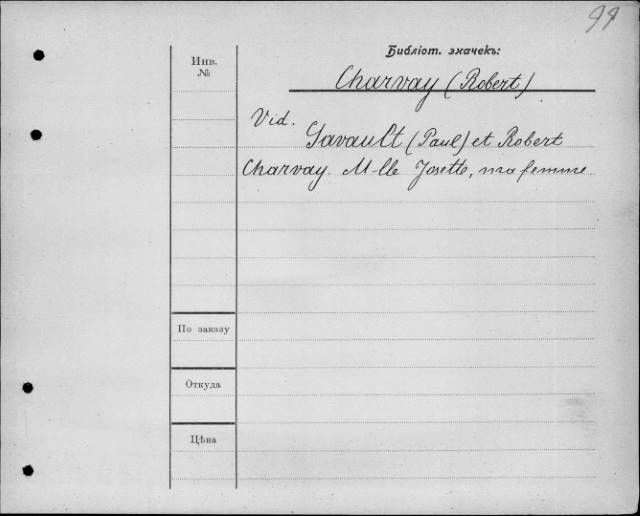 99
Библіот. значекъ:
Инв.
№
Charvay (Robert)
Vid.
Gavault (Paul) et Robert
Charvay. M-lle Josette, ma femme
По заказу
Откуда
Цѣна